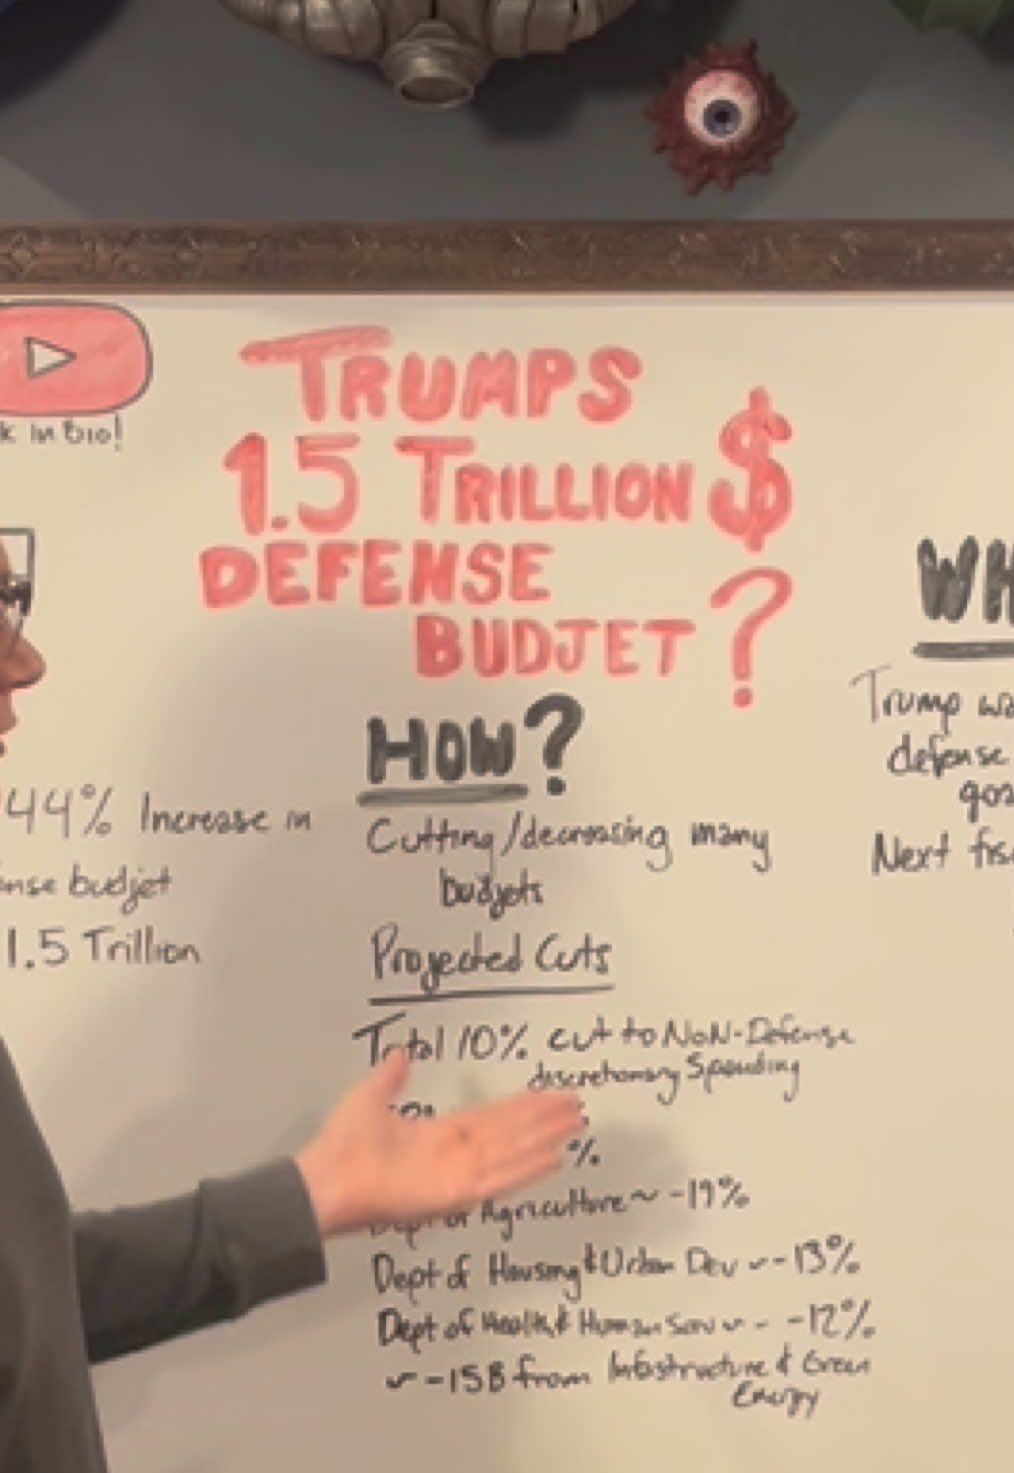 k in Bio!
TRUMPS
1.5 TRILLION $
DEFENSE
BUDJET?
44% Increase in
nse budjet
1.5 Trillion
HOW?
Cutting/decreasing many
budjets
Projected Cuts
Total 10% cut to NoN-Defense
discretionary Spending
%
Dept of Agriculture ~ -19%
Dept of Housing & Urban Dev ~ -13%
Dept of Health & Human Serv ~ - -12%
~ -15B from Infastructure & Green
Energy
WH
Trump wa
defense
goa
Next fisc